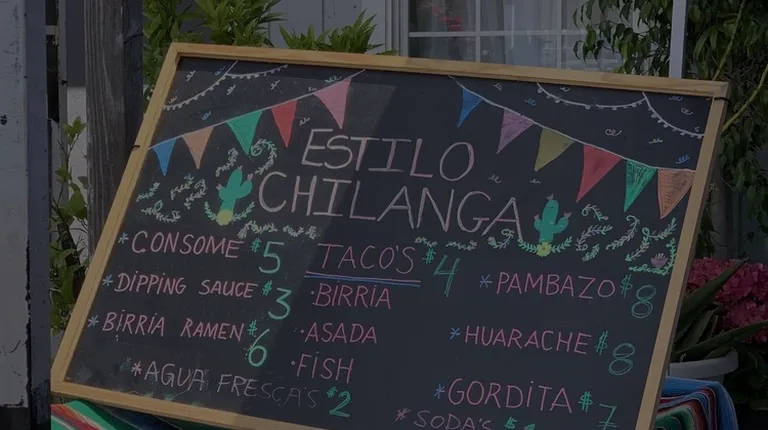 ESTILO
CHILANGA
*CONSOME $5
*DIPPING SAUCE $3
*BIRRIA RAMEN $6
*AGUA FRESCA'S $2
TACO'S $4
·BIRRIA
·ASADA
·FISH
*PAMBAZO $8
*HUARACHE $8
*GORDITA $7
*SODA'S